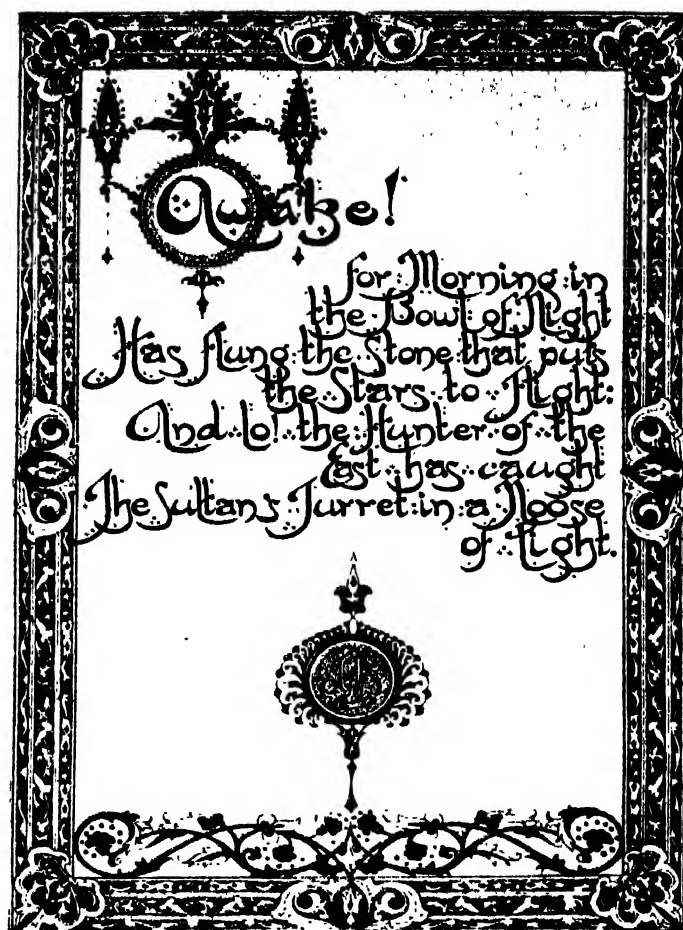 Awake!
for Morning in
the Bowl of Night
Has flung the Stone that puts
the Stars to Flight:
And lo! the Hunter of the
East has caught
The Sultan's Turret in a Noose
of Light.